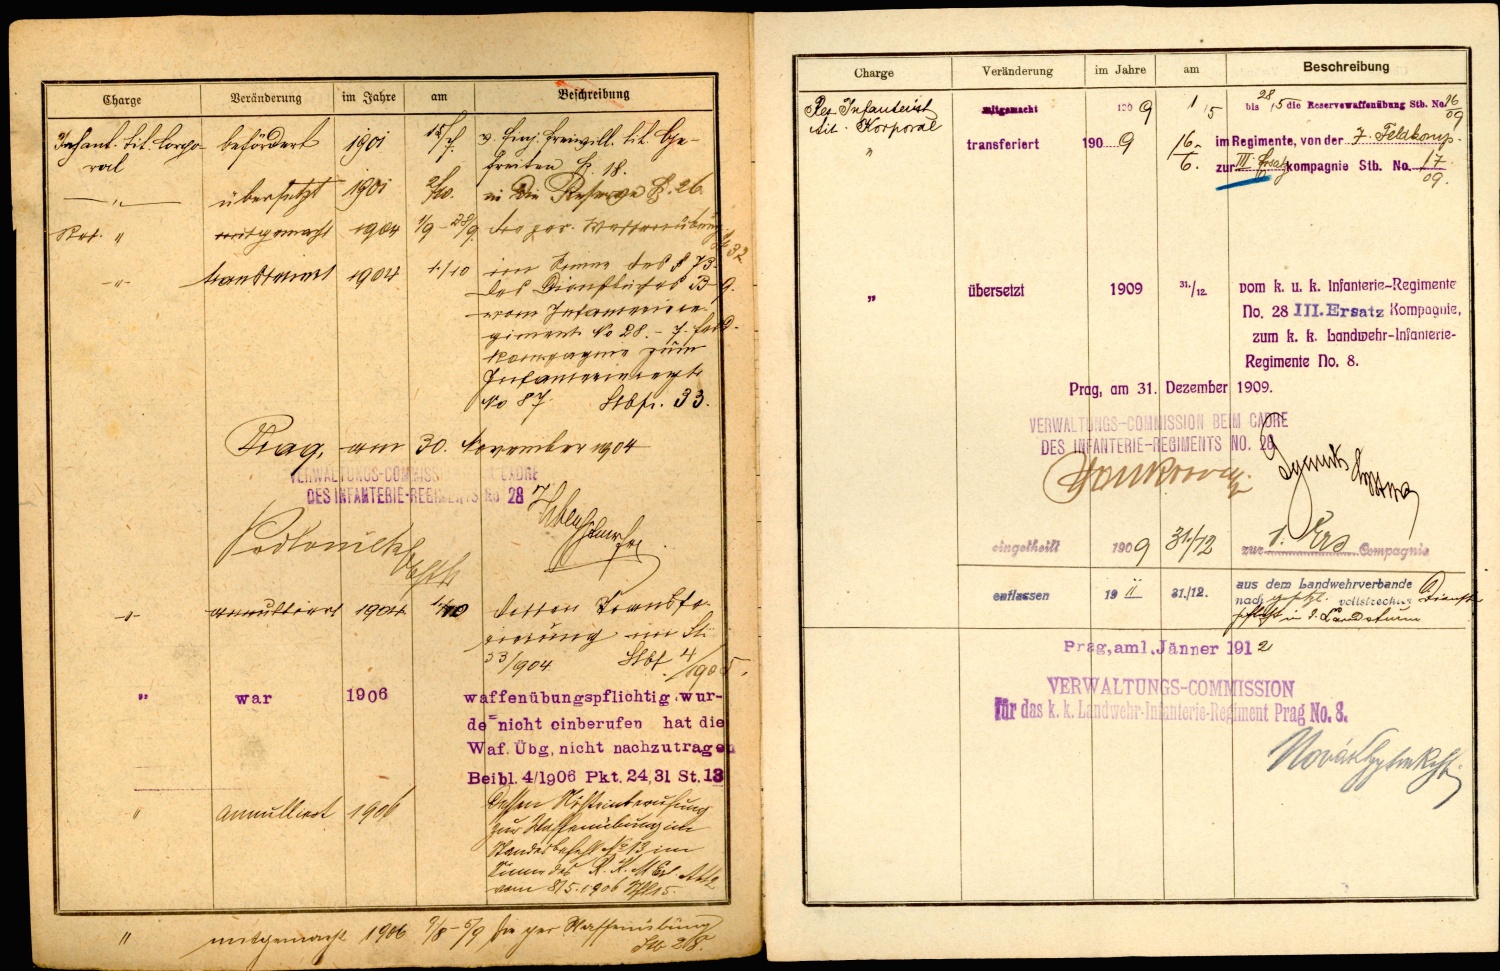 Charge Veränderung im Jahre am Beschreibung
Infant. tit. Corpo- befördert 1901 v. Einj. Freiwill. tit. Ge-
ral freiten H. 18.
übersetzt 1901 in die Reserve H. 26.
Res. " mitgemacht 1904 1/9 - 28/9 die per. Waffenübung
32
-"- transferiert 1904 1./10 im Sinne des § 73
des Dienstbuches
vom Infanteriere-
giment No 28. - 7. Feld-
kompagnie zum
Infanterieregte
No 87. Stbf. 33.
Prag, am 30. November 1904
VERWALTUNGS-COMMISSION CADRE
DES INFANTERIE-REGIMENTS No 28
-"- annulliert 1904 1/10 dessen Transfe-
rierung im St:
33/1904 Stbf. 4/1905.
" war 1906 waffenübungspflichtig wur-
de nicht einberufen hat die
Waf. Übg, nicht nachzutragen
Beibl. 4/1906 Pkt. 24,31 St. 13
" annulliert 1906 dessen Nichteinberufung
zur Waffenübung im
Standesbefehl No 13 im
Sinne des R. K. M. Erl.
vom 8/5. 1906
" mitgemacht 1906 9/8 - 5/9 die per Waffenübung
Stb 28.
Charge Veränderung im Jahre am Beschreibung
Res. Infanterist mitgemacht 1909 1/5 bis 28/5 die Reservewaffenübung Stb. No. 16/09
tit. Korporal
" transferiert 1909 16./6. im Regimente, von der 7. Feldkomp.
zur III. Ersatzkompagnie Stb. No. 17/09.
" übersetzt 1909 31./12. vom k. u. k. Infanterie-Regimente
No. 28 III. Ersatz Kompagnie,
zum k. k. Landwehr-Infanterie-
Regimente No. 8.
Prag, am 31. Dezember 1909.
VERWALTUNGS-COMMISSION BEIM CADRE
DES INFANTERIE-REGIMENTS NO. 28
eingetheilt 1909 31/12 zur 1. Ers Compagnie
entlassen 19 11 31./12. aus dem Landwehrverbande
nach gesetzl. vollstreckter Dienst-
pflicht in d. Landsturm
Prag, am 1. Jänner 1912
VERWALTUNGS-COMMISSION
für das k. k. Landwehr-Infanterie-Regiment Prag No. 8.